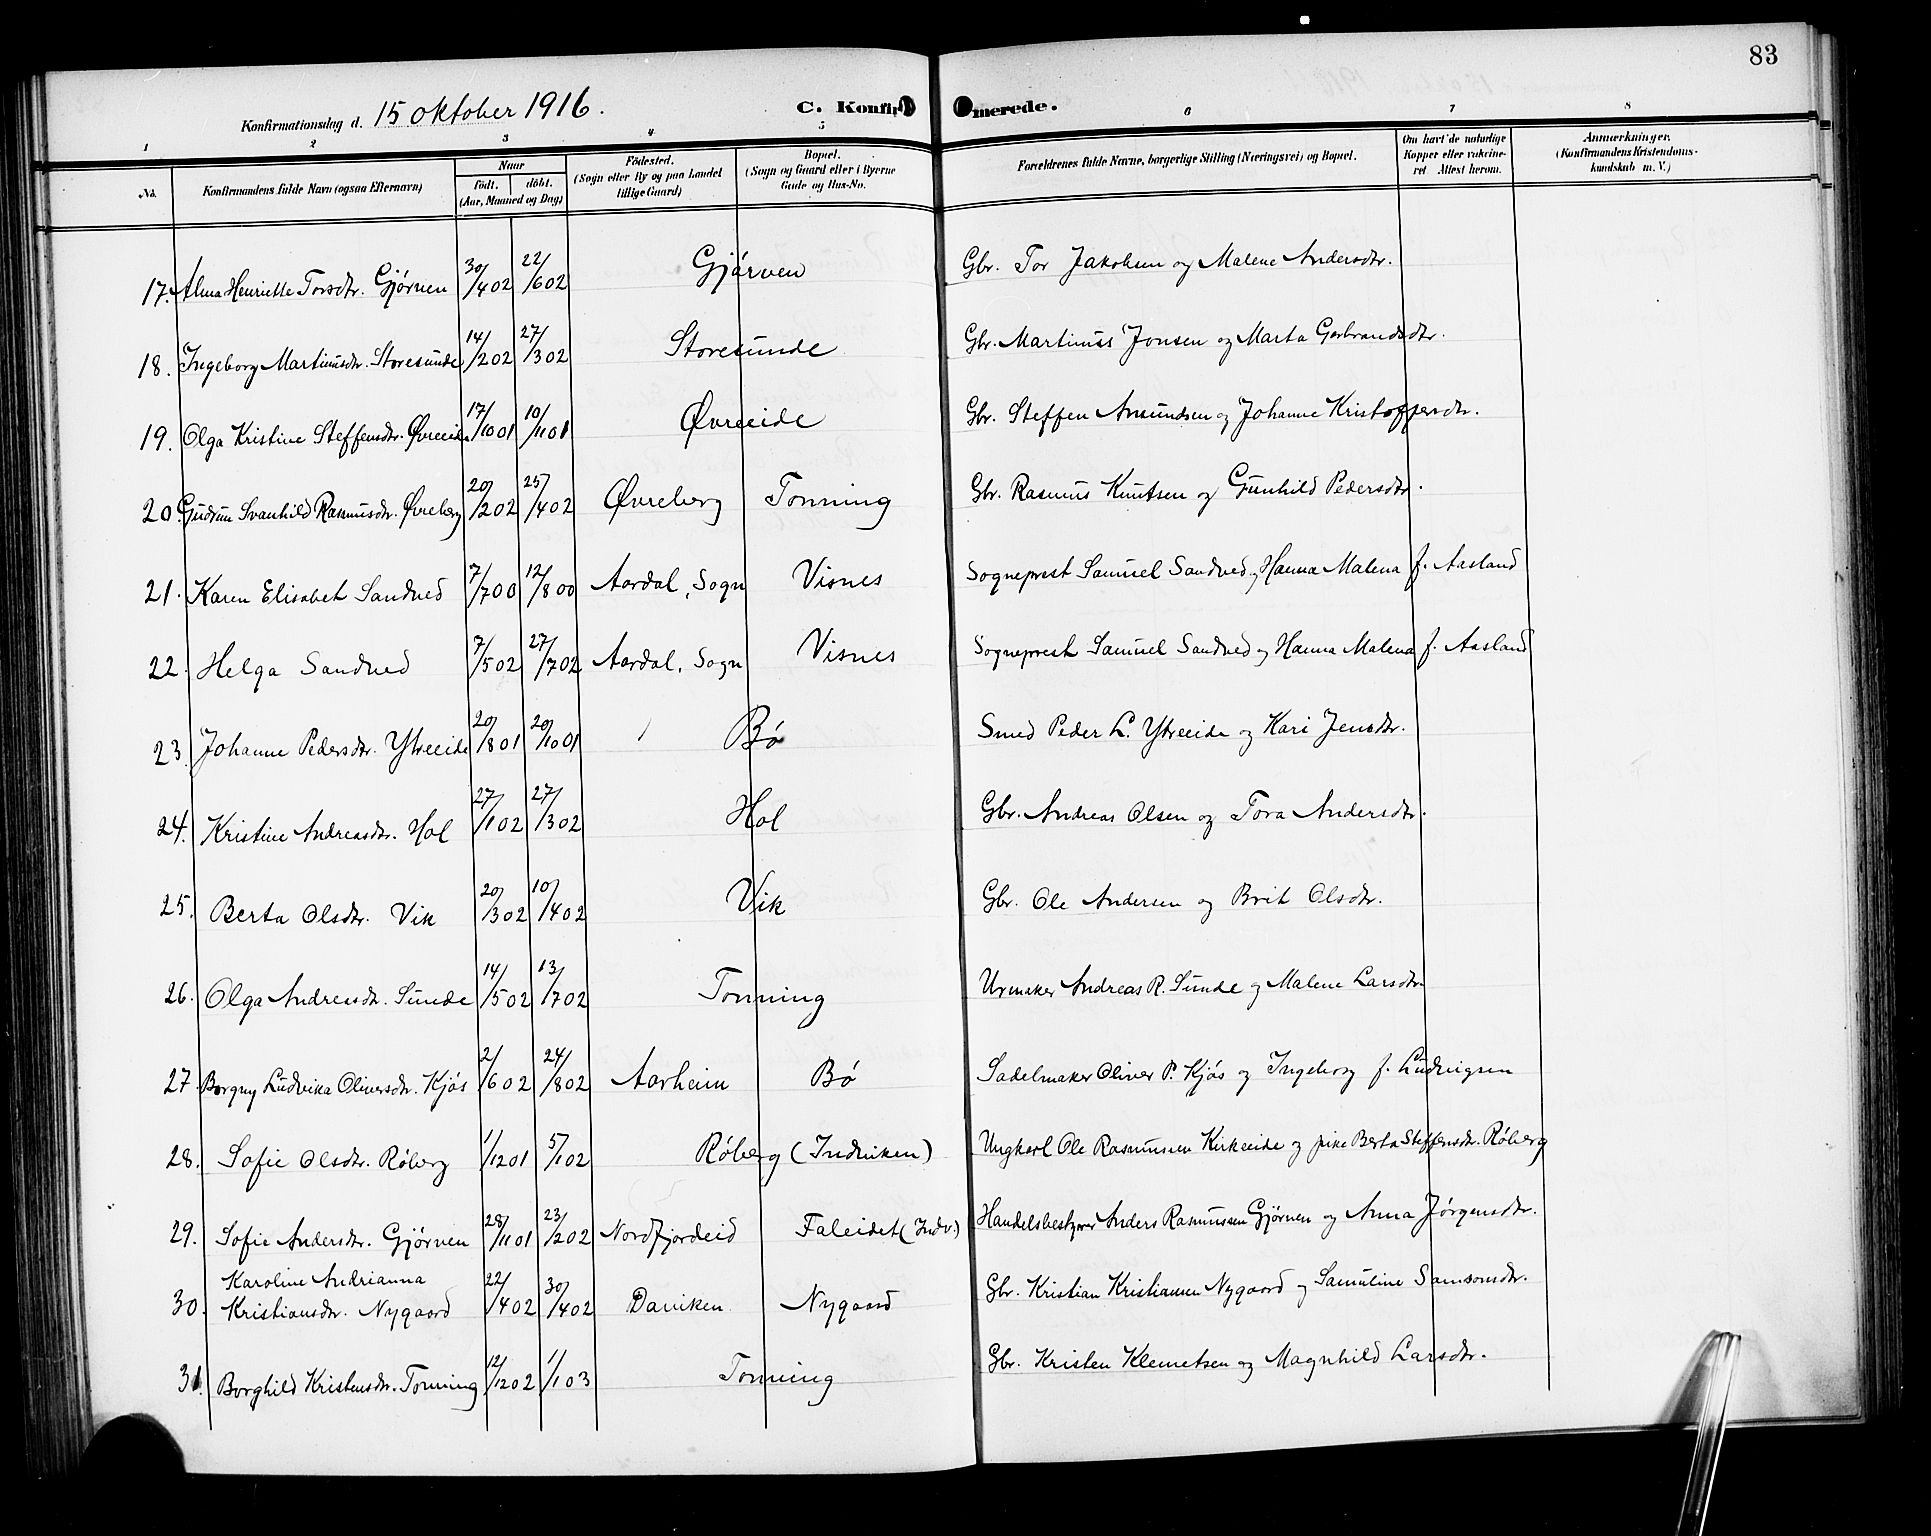 83
Konfirmationsdag d. 15 oktober 1916. C. Konfir merede.
1 2 3 4 5 6 7 8
No. Konfirmandens fulde Navn (ogsaa Efternavn) Naar født. døbt. (Aar, Maaned og Dag) Fødested. (Sogn eller By og paa Landet tillige Gaard) Bopæl. (Sogn og Gaard eller i Byerne Gade og Hus-No. Forældrenes fulde Navne, borgerlige Stilling (Næringsvei) og Bopæl. Om havt de naturlige Kopper eller vakcineret. Attest herom. Anmærkninger. (Konfirmandens Kristendomskundskab m. V.)
17. Alma Henriette Torsdtr. Gjørven 30/4 02 22/6 02 Gjørven Gbr. Tor Jakobsen og Malene Andersdtr.
18. Ingeborg Martinusdtr. Storesunde 14/2 02 27/3 02 Storesunde Gbr. Martinus Jonsen og Marta Gerbrandsdtr.
19. Olga Kristine Steffensdtr. Øvreeide 17/10 01 10/11 01 Øvreeide Gbr. Steffen Amundsen og Johanne Kristoffersdtr.
20. Gudrun Svanhild Rasmusdtr. Øvreberg 20/2 02 25/4 02 Øvreberg Tonning Gbr. Rasmus Knutsen og Gunhild Pedersdtr.
21. Karen Elisabet Sandved 7/7 00 12/8 00 Aardal, Sogn Visnes Sogneprest Samuel Sandved og Hanna Malena f. Aasland
22. Helga Sandved 7/5 02 27/7 02 Aardal, Sogn Visnes Sogneprest Samuel Sandved og Hanna Malena f. Aasland
23. Johanne Pedersdtr. Ytreeide 20/8 01 20/10 01 Bø Smed Peder L. Ytreeide og Kari Jensdtr.
24. Kristine Andreasdtr. Hol 27/1 02 27/3 02 Hol Gbr. Andreas Olsen og Tora Andersdtr.
25. Berta Olsdtr. Vik 20/3 02 10/4 02 Vik Gbr. Ole Andersen og Brit Olsdtr.
26. Olga Andreasdtr. Sunde 14/5 02 13/7 02 Tonning Urmaker Andreas R. Sunde og Malene Larsdtr.
27. Borgny Ludvika Oliversdtr. Kjøs 2/6 02 24/8 02 Aarheim Bø Sadelmaker Oliver P. Kjøs og Ingeborg f. Ludvigsen
28. Sofie Olsdtr. Røberg 1/12 01 5/1 02 Røberg (Indviken) Ungkarl Ole Rasmussen Kirkeeide og pike Berta Steffensdtr. Røberg
29. Sofie Andersdtr. Gjørven 28/11 01 23/2 02 Nordfjordeid Faleidet (Indv.) Handelsbestyrer Anders Rasmussen Gjørven og Anna Jørgensdtr.
Karoline Andrianna
30. Kristiansdtr. Nygaard 22/4 02 30/4 02 Daviken Nygaard Gbr. Kristian Kristiansen Nygaard og Samuline Samsonsdtr.
31. Borghild Kristensdtr. Tonning 12/12 02 1/1 03 Tonning Gbr. Kristen Klemetsen og Magnhild Larsdtr.